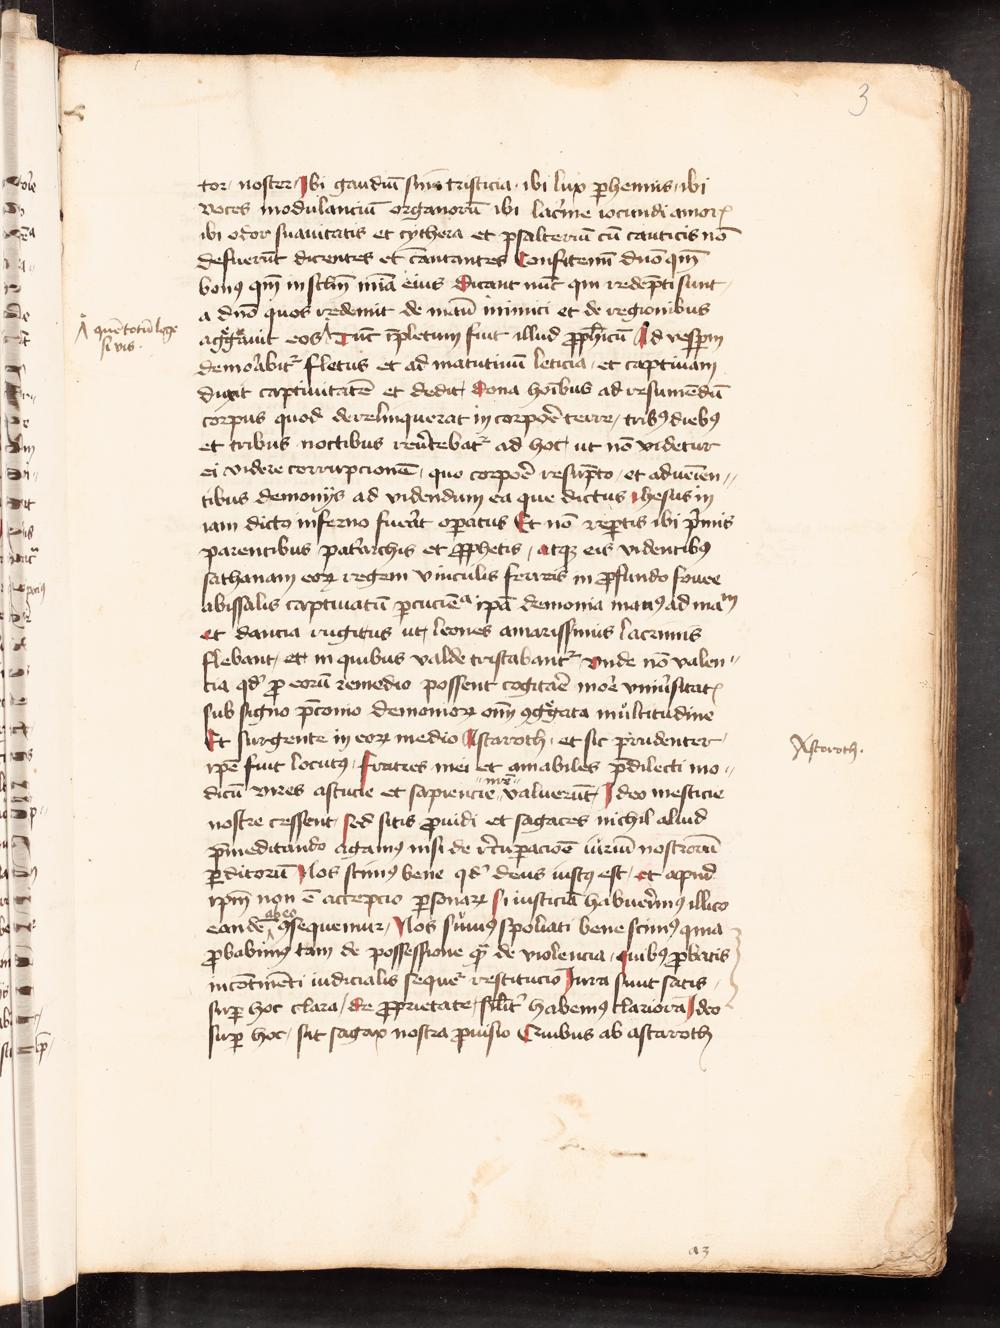 3
tor noster Ibi gaudiū sine tristicia ibi lux perhennis ibi
voces modulanciū organorū ibi lacrime iocundi amoris
ibi odor suavitatis et cythera et psalteriū cū canticis nō
defuerūt dicentes et cantantes Confitemī dn̄o qm̄
bonus qm̄ in sclm̄ mīa eius Dicant nūc qui redēpti sunt
a dn̄o quos redemit de manu inimici et de regionibus
ggavit eos Tūc īpletum fuit illud propheticū Ad vesperum
demorabitur fletus et ad matutinū leticia et captivam
duxit captivitatē et dedit Dona hoībus ad resumēdū
corpus quod derelinquerat in corpore terre tribus diebus
et tribus noctibus revertebatur ad hoc ut nō videtur
ei videre corrupcionē quo corpore resumpto et advenien
tibus demonijs ad videndum ea que dictus Jhesus in
iam dicto inferno fuerat operatus Et nō repertis ibi primis
parentibus patriarchis et prophetis atque eis videntibus
sathanam eorum regem vinculis ferreis in profundo fovee
abissalis captivatū percuciēa ipā demonia manus ad mam
et dancia rugitus ut leones amarissimis lacrimis
flebant et in quibus valde tristabantur unde nō valen
cia qd pro eorū remedio possent cogitare more universitatis
sub signo preconio demoniorum oim ggata multitudine
Et surgente in eorum medio Astaroth et sic prudenter
ipē fuit locutus Fratres mei et amabiles predilecti mo
dicū vires astucie et sapiencie nrē valuerūt Ideo mesticie
nostre cressent Sed sitis providi et sagaces nichil aliud
premeditando agamus nisi de recuperacioē iurium nostrorū
perditorū Nos scimus bene qd deus iustus est et apud
ipm non ē accepcio personarum Si iusticiā habuerimus illico
eande ab eo gsequemur Nos sumus spoliati bene scimus quia
probabimus tam de possessione qm de violencia quibus probatis
incōtinēti iudicialis sequetur restitucio Iura sunt satis
super hoc clara de proprietate similiter habemus clariora Ideo
super hoc sit sagax nostra provisio Quibus ab astaroth
quē totū lege
si vis
Astaroth.
a3